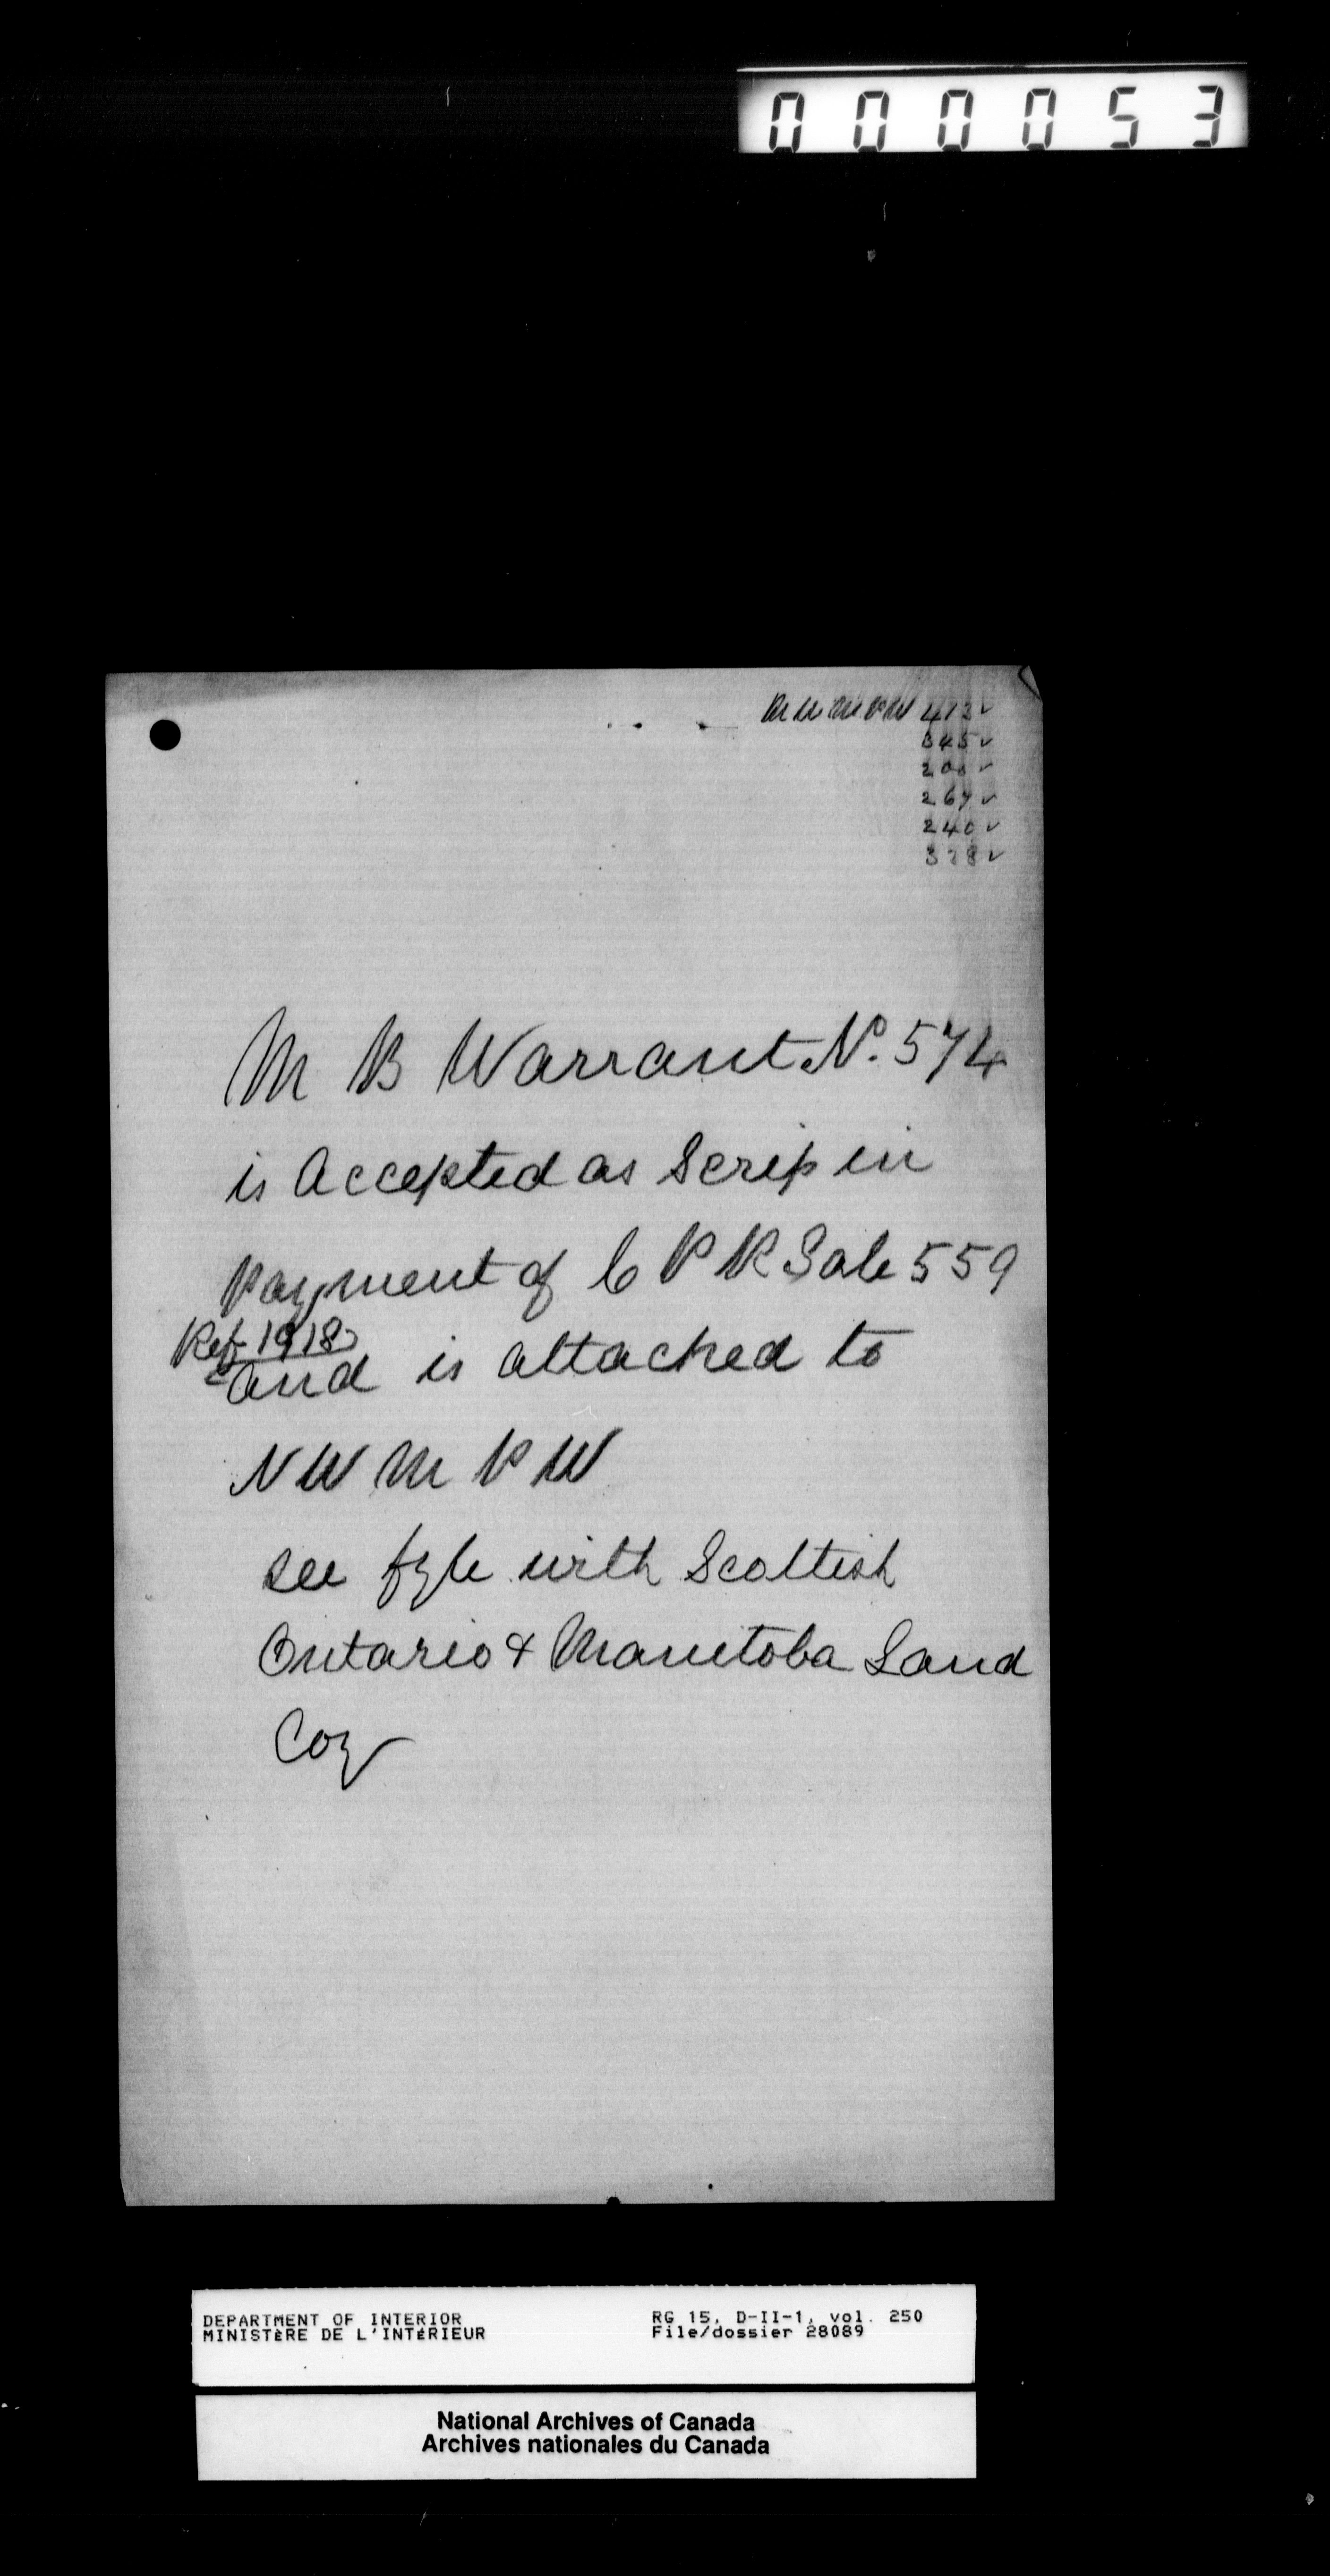 000053
N W M P W 473 ✓
345 ✓
208 ✓
267 ✓
240 ✓
328 ✓
M B Warrant No. 574
is Accepted as Scrip in
payment of C P R Sale 559
Ref 1918
and is attached to
N W M P W
see fyle with Scottish
Ontario & Manitoba Land
Coy
DEPARTMENT OF INTERIOR RG 15, D-II-1, vol. 250
MINISTÈRE DE L'INTÉRIEUR File/dossier 28089
National Archives of Canada
Archives nationales du Canada